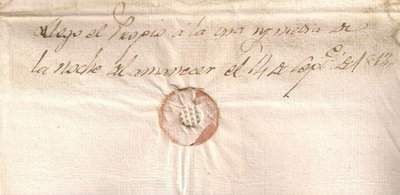 llego el Propio á la una y media de
la noche al amanecer el 14 de Sepre. de 1812